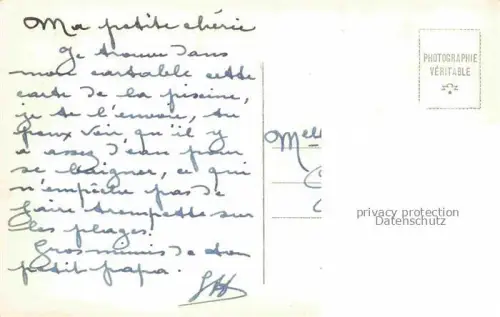 Ma petite chérie
Je trouve dans
mon cartable cette
carte de la piscine,
je te l'envoie, tu
peux voir qu'il y
a assez d'eau pour
se baigner, ce qui
n'empêche pas de
faire trempette sur
les plages!
Gros mimis de ton
petit papa.
PHOTOGRAPHIE
VÉRITABLE
Melle
privacy protection
Datenschutz